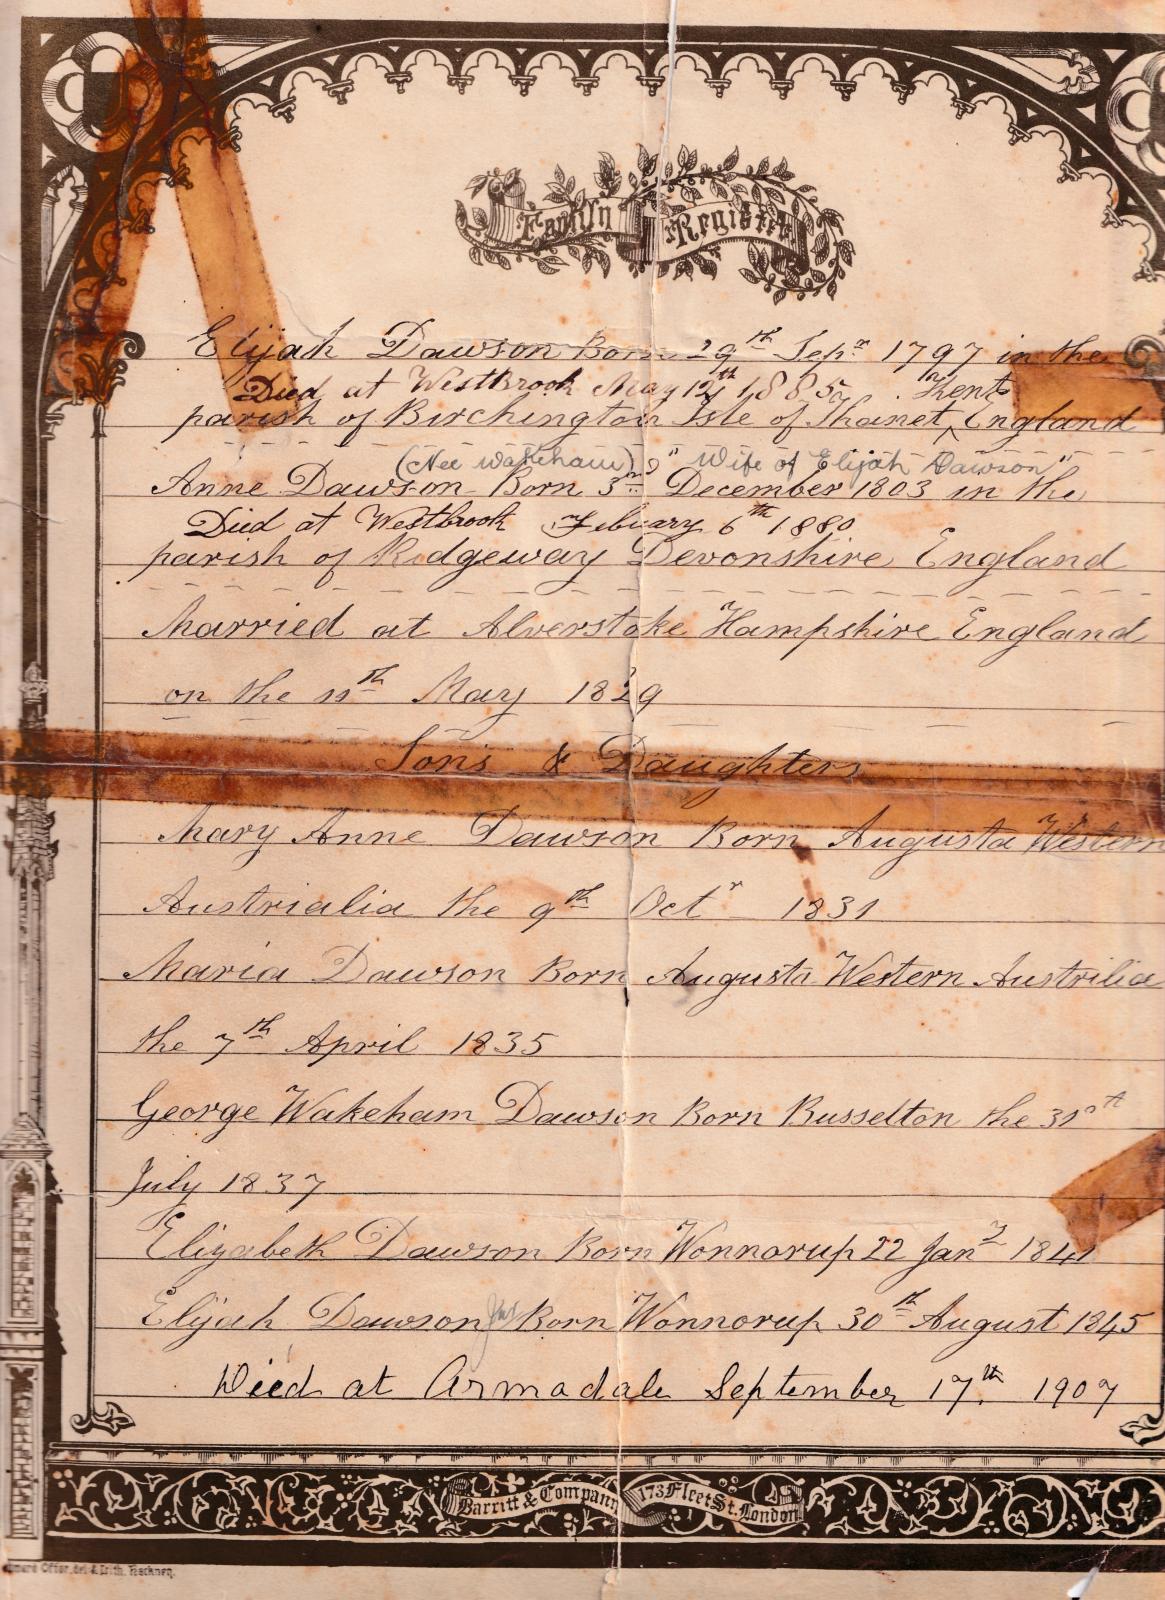 Family Register
Elijah Dawson Born 29th Sepr 1797 in the
Died at Westbrook May 12th 1885. Kent
parish of Birchington Isle of Thanet ^ England
(Nee Wakeham) " Wife of Elijah Dawson "
Anne Dawson Born 3rd December 1803 in the
Died at Westbrook Febuary 6th 1880
parish of Ridgeway Devonshire England
Married at Alverstoke Hampshire England
on the 11th May 1829
Sons & Daughters
Mary Anne Dawson Born Augusta Western
Austrialia the 9th Octr 1831
Maria Dawson Born Augusta Western Austrilia
the 7th April 1835
George Wakeham Dawson Born Busselton the 31st
July 1837
Elizabeth Dawson Born Wonnorup 22 Jany 1841
Elijah Dawson Jnr Born Wonnorup 30th August 1845
Died at Armadale September 17th 1907
Barritt & Company 173 Fleet St. London
Offor, del & Lith. Hackney.